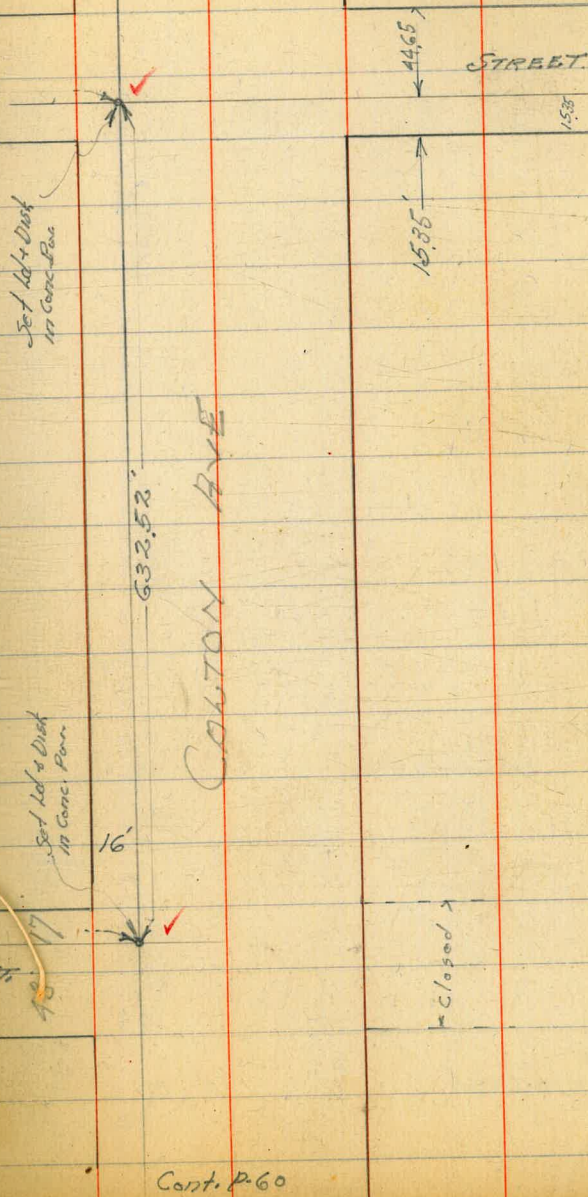 44.65
STREET.
15.35
15.35'
Set Ld & Disk
in Conc. Pav.
632.52'
COLTON AVE
Set Ld & Disk
in Conc. Pav.
16'
17
48'
Closed
Cont. P-60